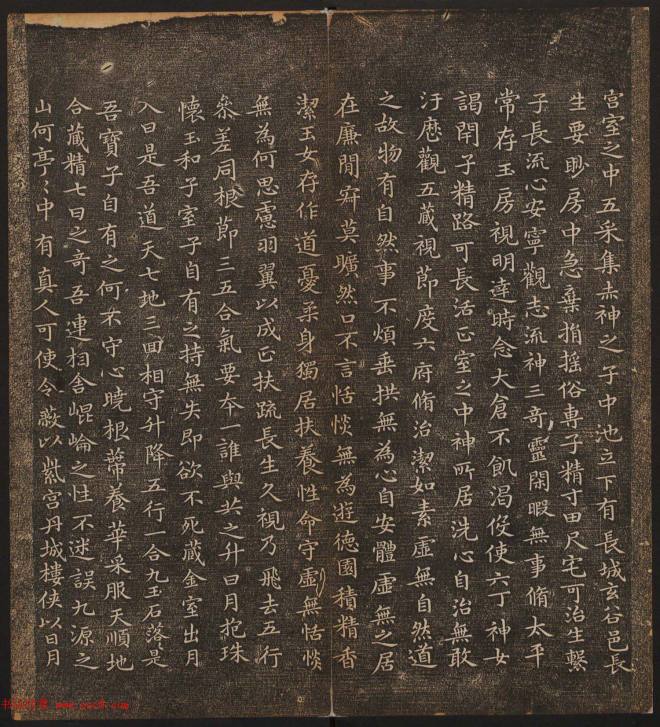 宫室之中五采集赤神之子中池立下有長城玄谷邑長
生要眇房中急棄捐搖俗專子精寸田尺宅可治生繫
子長流心安寧觀志流神三奇靈閑暇無事脩太平
常存玉房視明達時念大倉不飢渴伇使六丁神女
謁閇子精路可長活正室之中神所居洗心自治無敢
汙歷觀五藏視節度六府脩治潔如素虛無自然道
之故物有自然事不煩垂拱無為心自安體虛無之居
在廉閒寂莫曠然口不言恬惔無為遊德園積精香
潔玉女存作道憂柔身獨居扶養性命守虛無恬惔
無為何思慮羽翼以成正扶疏長生久視乃飛去五行
參差同根節三五合氣要本一誰與共之升日月抱珠
懷玉和子室子自有之持無失即欲不死藏金室出月
入日是吾道天七地三回相守升降五行一合九玉石落落是
吾寶子自有之何不守心曉根蔕養華采服天順地
合藏精七日之奇吾連相舍崐崘之性不迷誤九源之
山何亭〻中有真人可使令蔽以紫宫丹城樓俠以日月